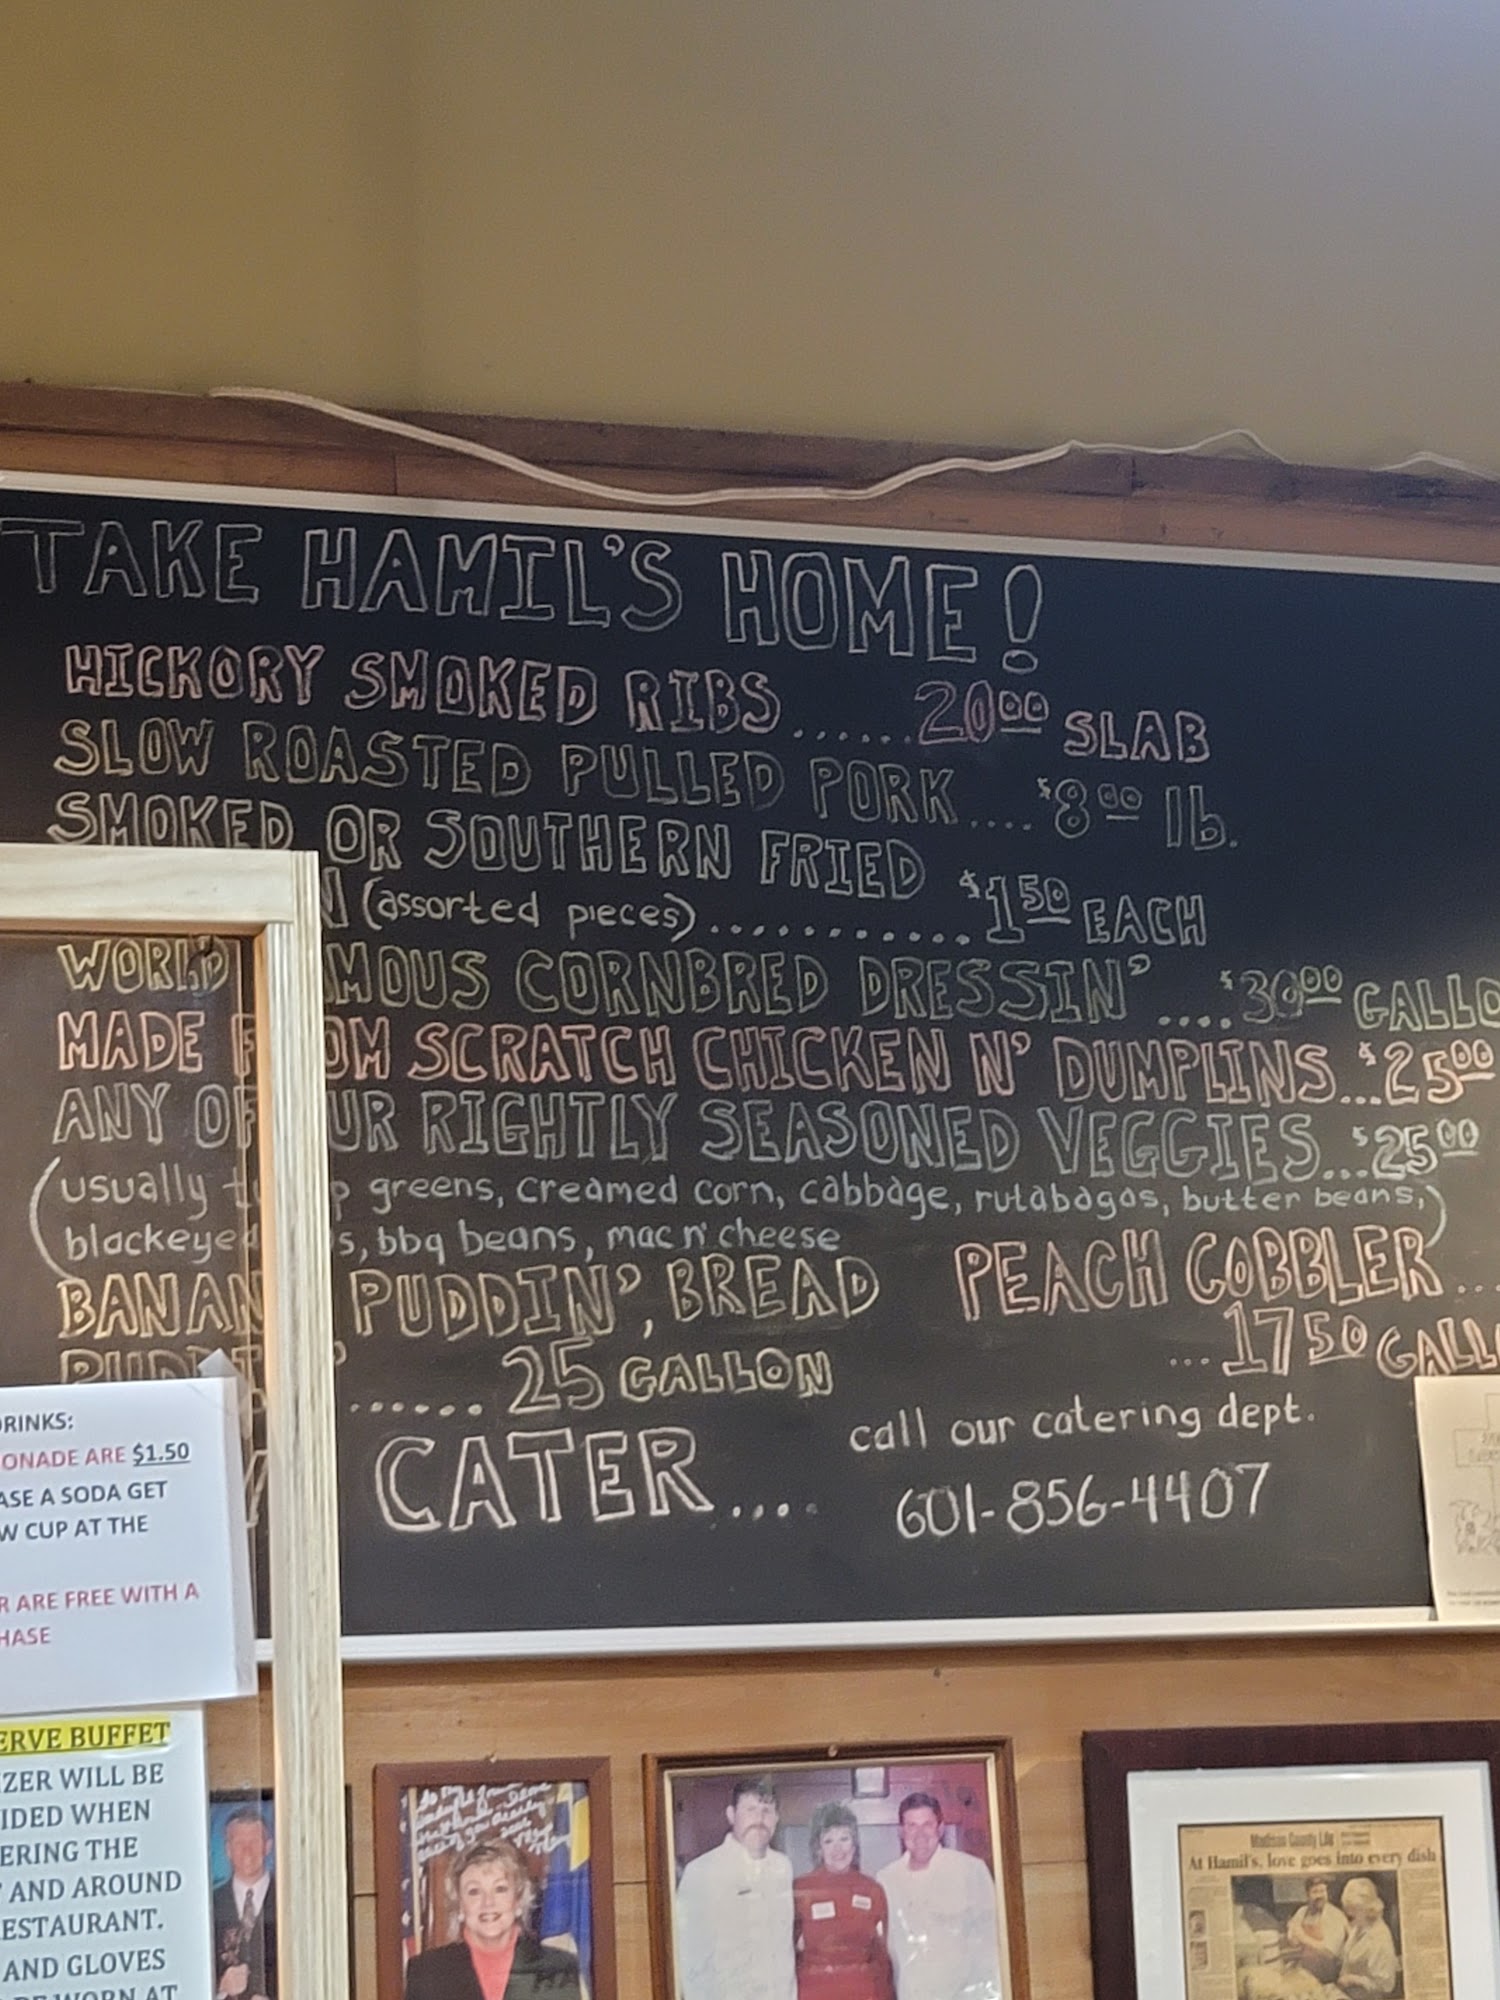 TAKE HAMIL'S HOME!
HICKORY SMOKED RIBS ...... 20.00 SLAB
SLOW ROASTED PULLED PORK .... $8.00 lb.
SMOKED OR SOUTHERN FRIED
N (assorted pieces) ............ $1.50 EACH
WORLD MOUS CORNBRED DRESSIN' .... $30.00 GALLO
MADE F OM SCRATCH CHICKEN N' DUMPLINS...$25.00
ANY OF UR RIGHTLY SEASONED VEGGIES...$25.00
(usually tu p greens, creamed corn, cabbage, rutabagas, butter beans,)
blackeyed s, bbq beans, mac n' cheese
BANAN PUDDIN', BREAD
PUDDIN' ...... 25 GALLON
PEACH COBBLER ...
... 17.50 GALL
CATER....
call our catering dept.
601-856-4407
DRINKS:
ONADE ARE $1.50
ASE A SODA GET
W CUP AT THE
R ARE FREE WITH A
HASE
ERVE BUFFET
ZER WILL BE
IDED WHEN
ERING THE
AND AROUND
ESTAURANT.
AND GLOVES
WORN AT
Madison County Life
At Hamil's, love goes into every dish